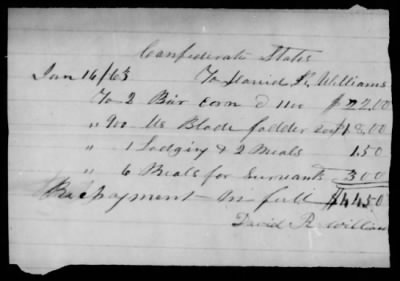 Confederate States
Jan 16/63 To David R. Williams
To 2 Bar corn @ 1100 $22.00
" 900 lbs Blade fodder 200 18.00
" 1 Lodging & 2 Meals 1.50
" 6 Meals for Survants 3.00
Rec payment in full $44.50
David R William